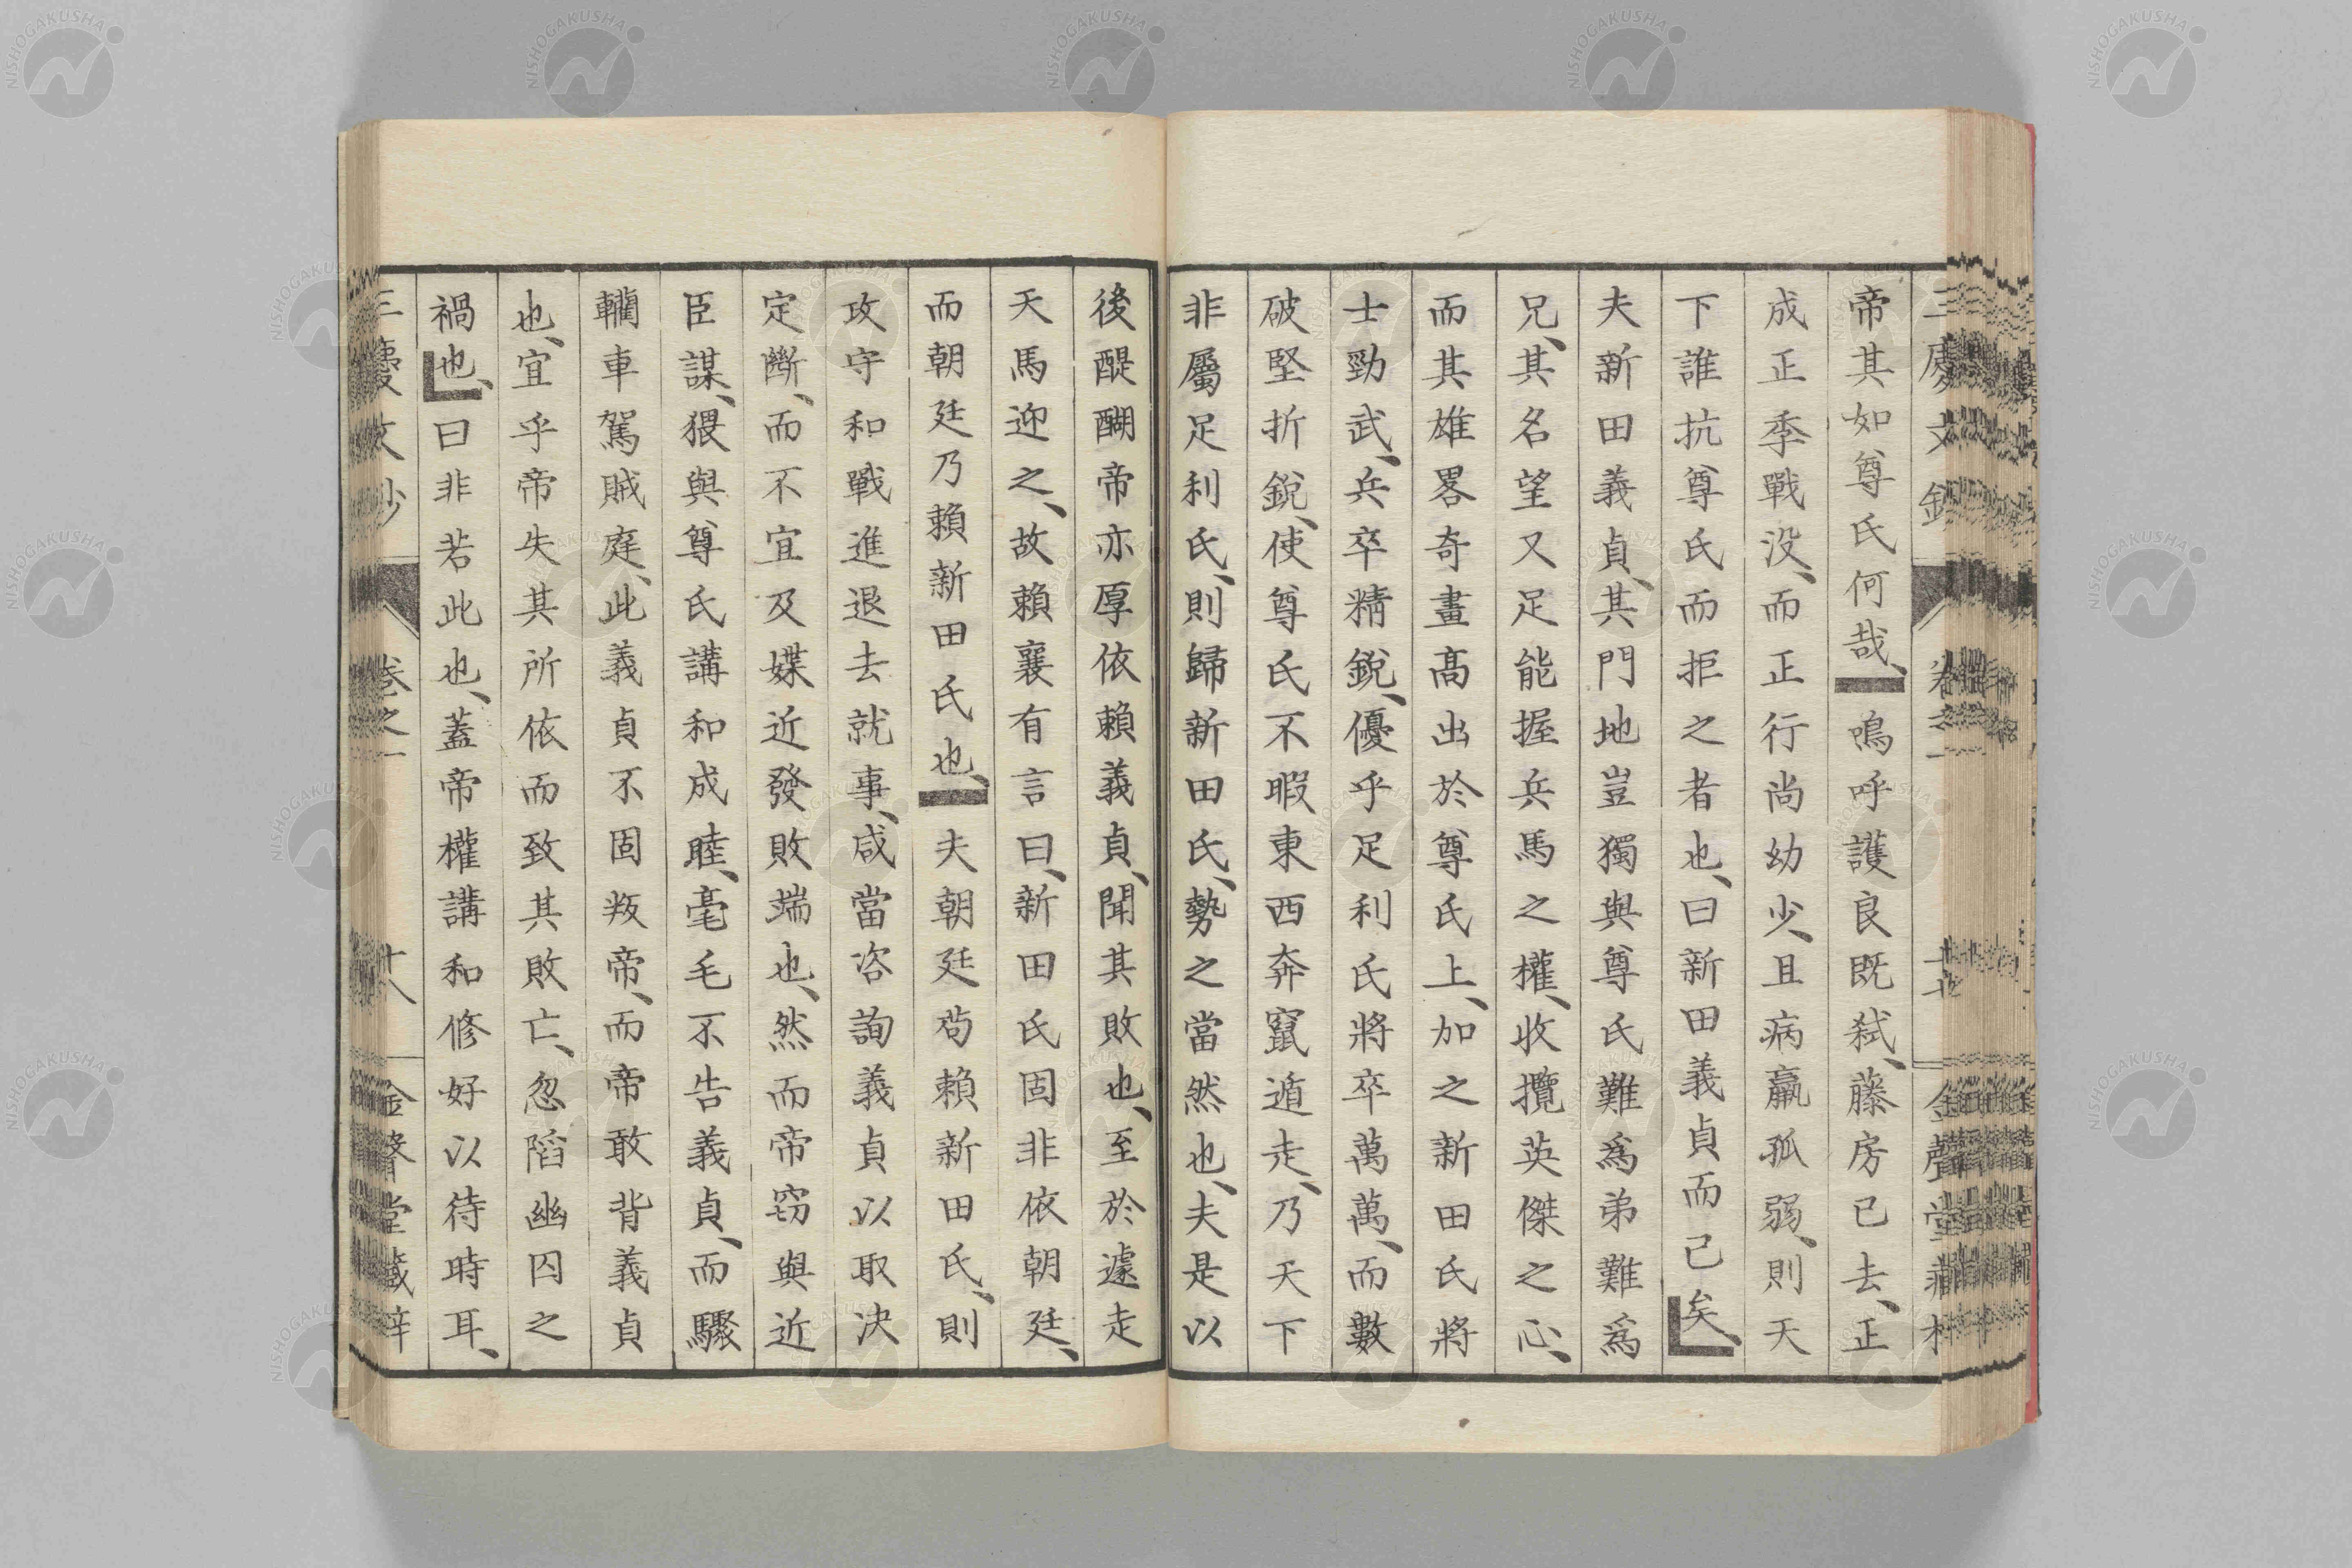 帝其如尊氏何哉、嗚呼護良既弑、藤房已去、正
成正季戰没、而正行尚幼少、且病羸孤弱、則天
下誰抗尊氏而拒之者也、曰新田義貞而已矣、
夫新田義貞、其門地豈獨與尊氏難爲弟難爲
兄、其名望又足能握兵馬之權、收攬英傑之心、
而其雄畧奇畫高出於尊氏上、加之新田氏將
士勁武、兵卒精銳、優乎足利氏將卒萬萬、而數
破堅折銳、使尊氏不暇東西奔竄遁走、乃天下
非屬足利氏、則歸新田氏、勢之當然也、夫是以
後醍醐帝亦厚依賴義貞、聞其敗也、至於遽走
天馬迎之、故賴襄有言曰、新田氏固非依朝廷、
而朝廷乃賴新田氏也、夫朝廷苟賴新田氏、則
攻守和戰進退去就事、咸當咨詢義貞以取决
定斷、而不宜及媟近發敗端也、然而帝窃與近
臣謀、猥與尊氏講和成睦、毫毛不告義貞、而驟
轎車駕賊庭、此義貞不固叛帝、而帝敢背義貞
也、宜乎帝失其所依而致其敗亡、忽陷幽囚之
禍也、曰非若此也、蓋帝權講和修好以待時耳、
卷之一
十八